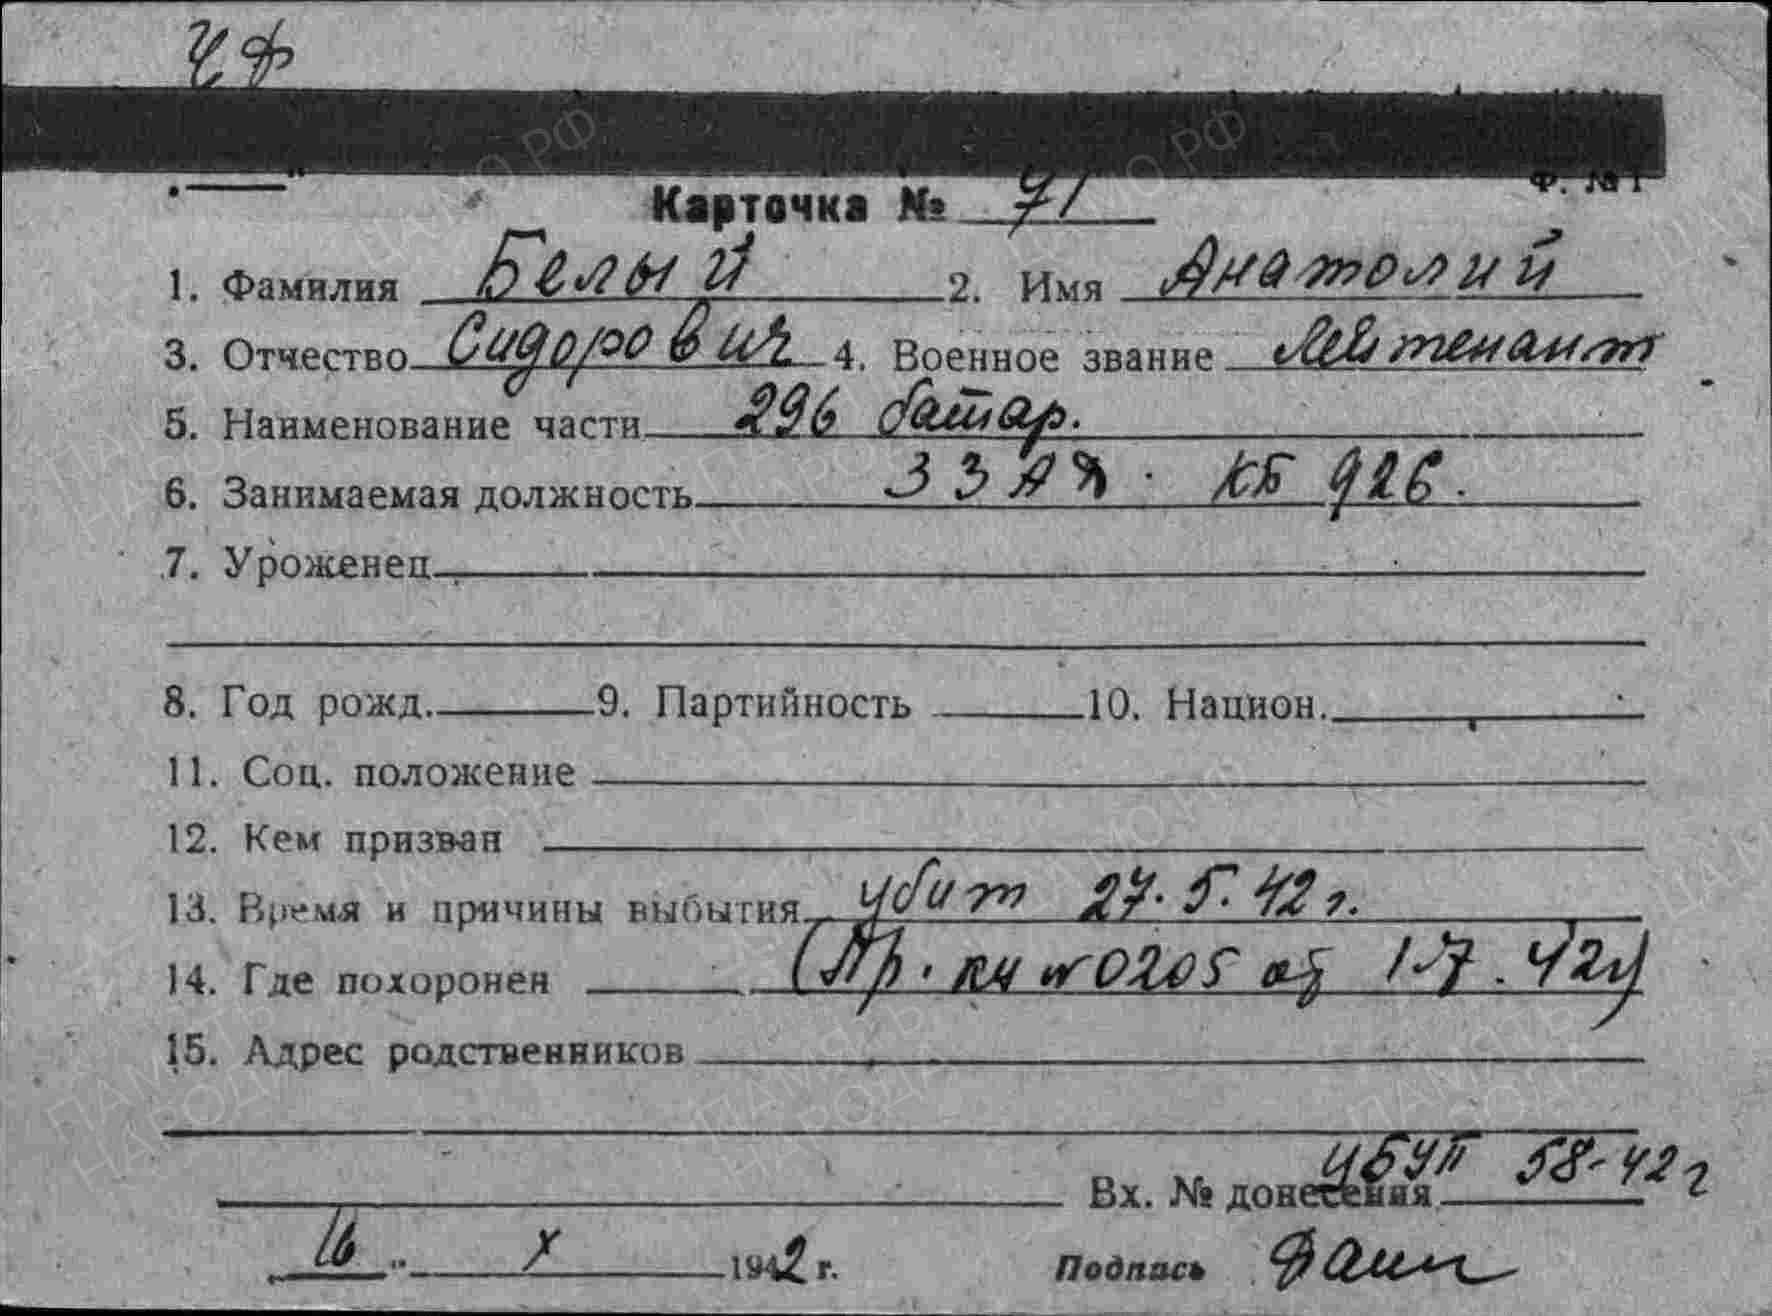 ЧФ
Ф. № 1
Карточка № 71
1. Фамилия Белый 2. Имя Анатолий
3. Отчество Сидорович 4. Военное звание Лейтенант
5. Наименование части 296 батар.
6. Занимаемая должность ККБ 926.
7. Уроженец
8. Год рожд. 9. Партийность 10. Национ.
11. Соц. положение
12. Кем призван
13. Время и причины выбытия убит 27.5.42 г.
14. Где похоронен (Пр. №0205 от 1.7.42г)
15. Адрес родственников
Вх. № донесения 58-42 г
16 " X 1942 г. Подпись